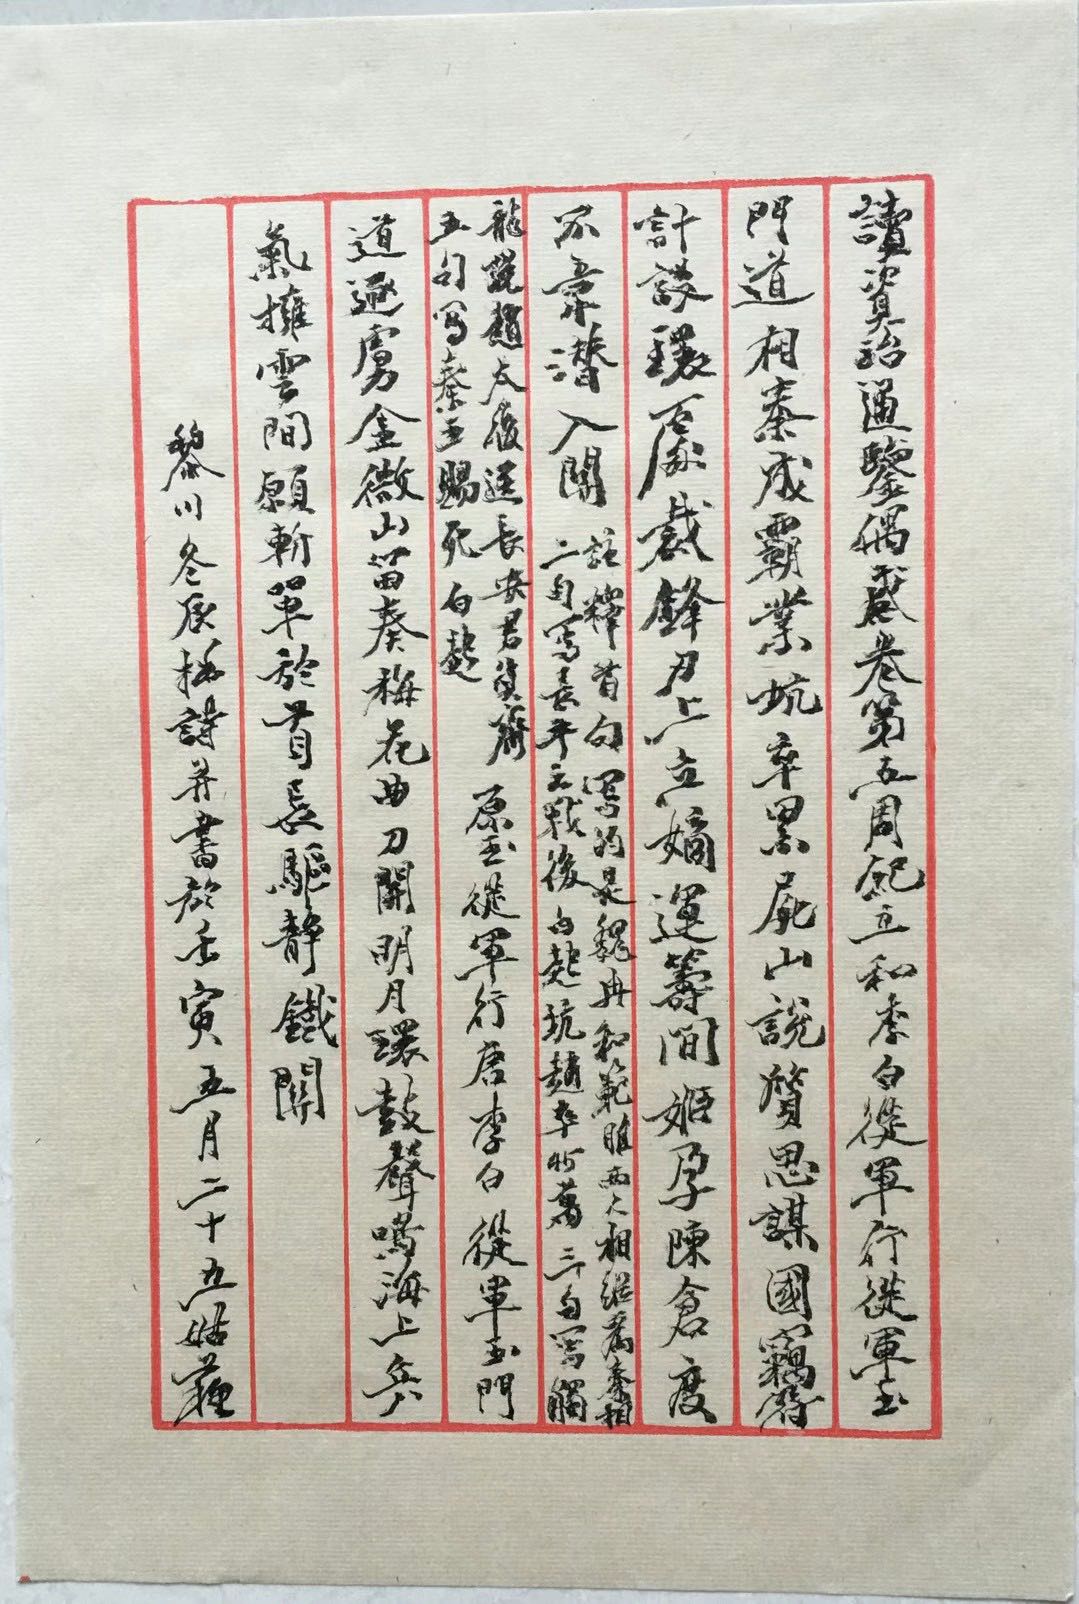 讀資治通鑒偶感卷第五周紀五和李白從軍行從軍玉
門道相秦成霸業坑卒累屍山說質思謀國竊符
計設環石房裁鋒刃上立嫡運籌間姬孕陳倉度
不韋潛入關
註釋首句寫的是魏冉和範雎兩人相繼為秦相
二句寫長平之戰後白起坑趙卒卌萬三句寫觸
龍說趙太後送長安君質齊
五句寫秦王賜死白起
原玉從軍行唐李白從軍玉門
道逐虜金微山笛奏梅花曲刀開明月環鼓聲鳴海上兵
氣擁雲間願斬單於首長驅靜鐵關
黎川冬辰楊詩并書於壬寅五月二十五姑蘇